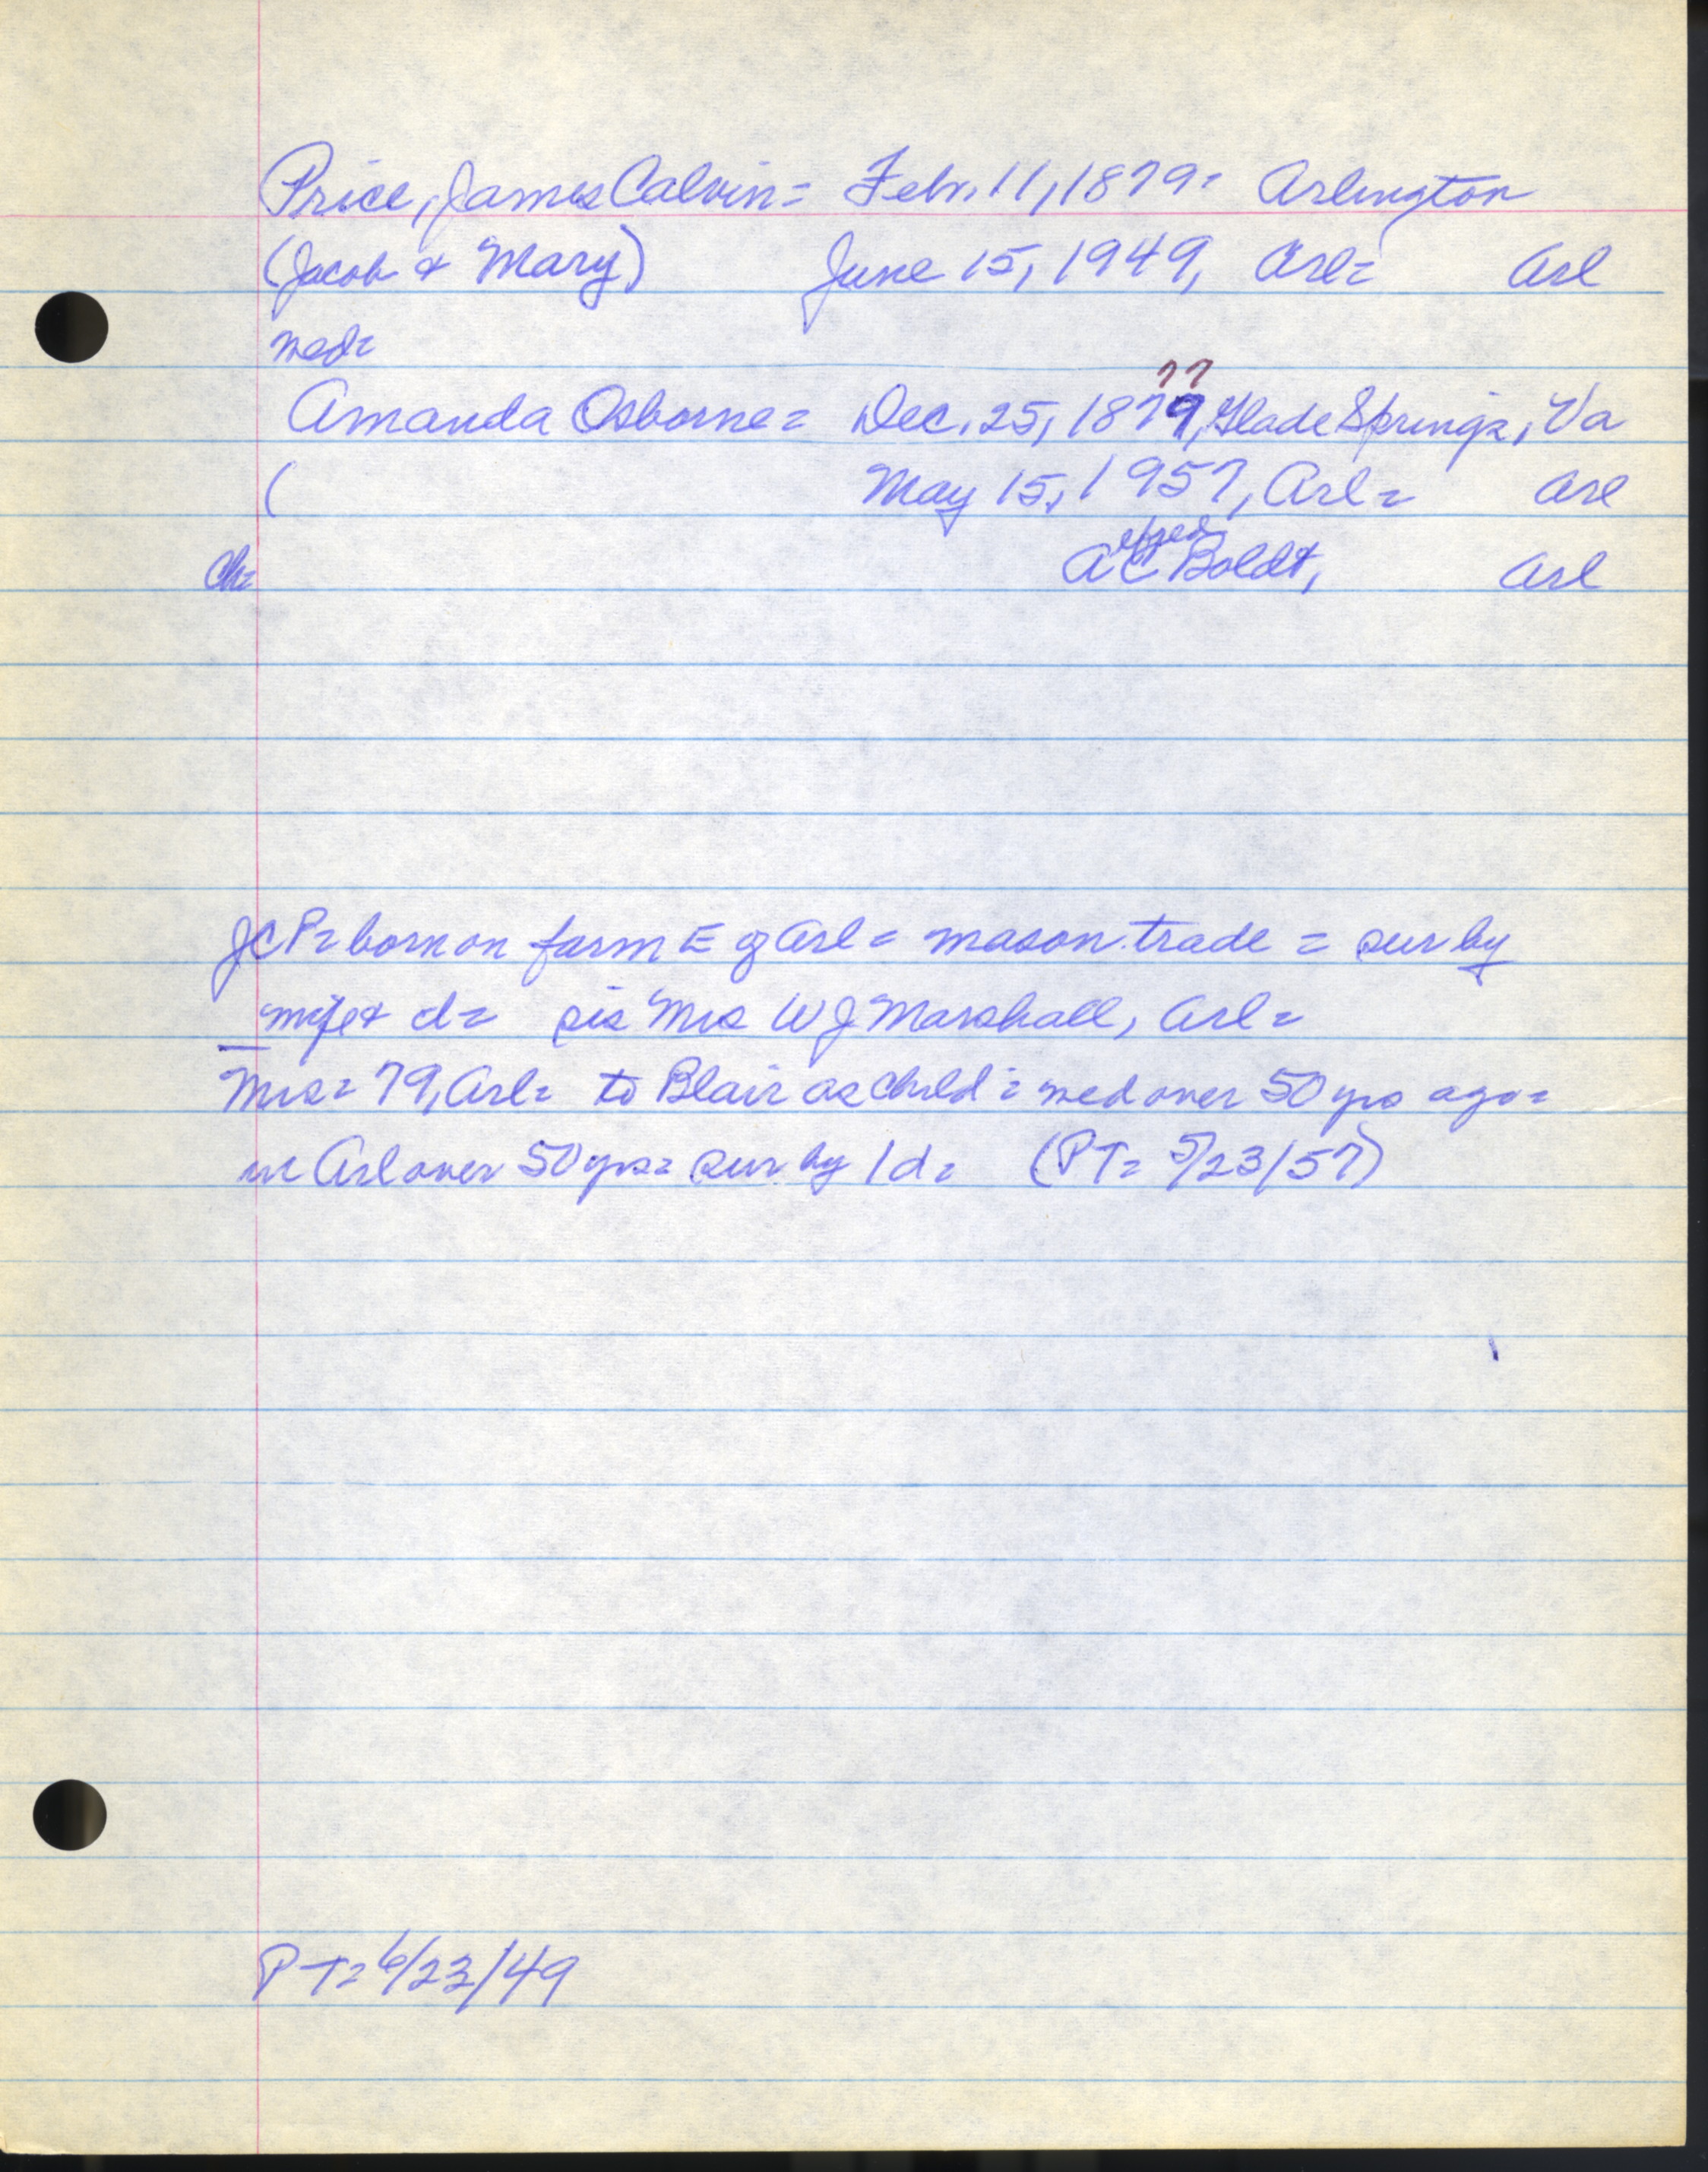 Price, James Calvin = Febr. 11, 1879 = Arlington
(Jacob & Mary) June 15, 1949, Arl = Arl
med =
77
Amanda Osborne = Dec. 25, 1879, Glade Springs, Va
( May 15, 1957, Arl = Arl
ch = A C Boldt, Arl
JCP = born on farm E of Arl = mason trade = sur by
wife & d = sis Mrs W J Marshall, Arl =
Mrs = 79, Arl = to Blair as child = med over 50 yrs ago =
in Arl over 50 yrs = sur by 1 d = (PT = 5/23/57)
PT = 6/23/49